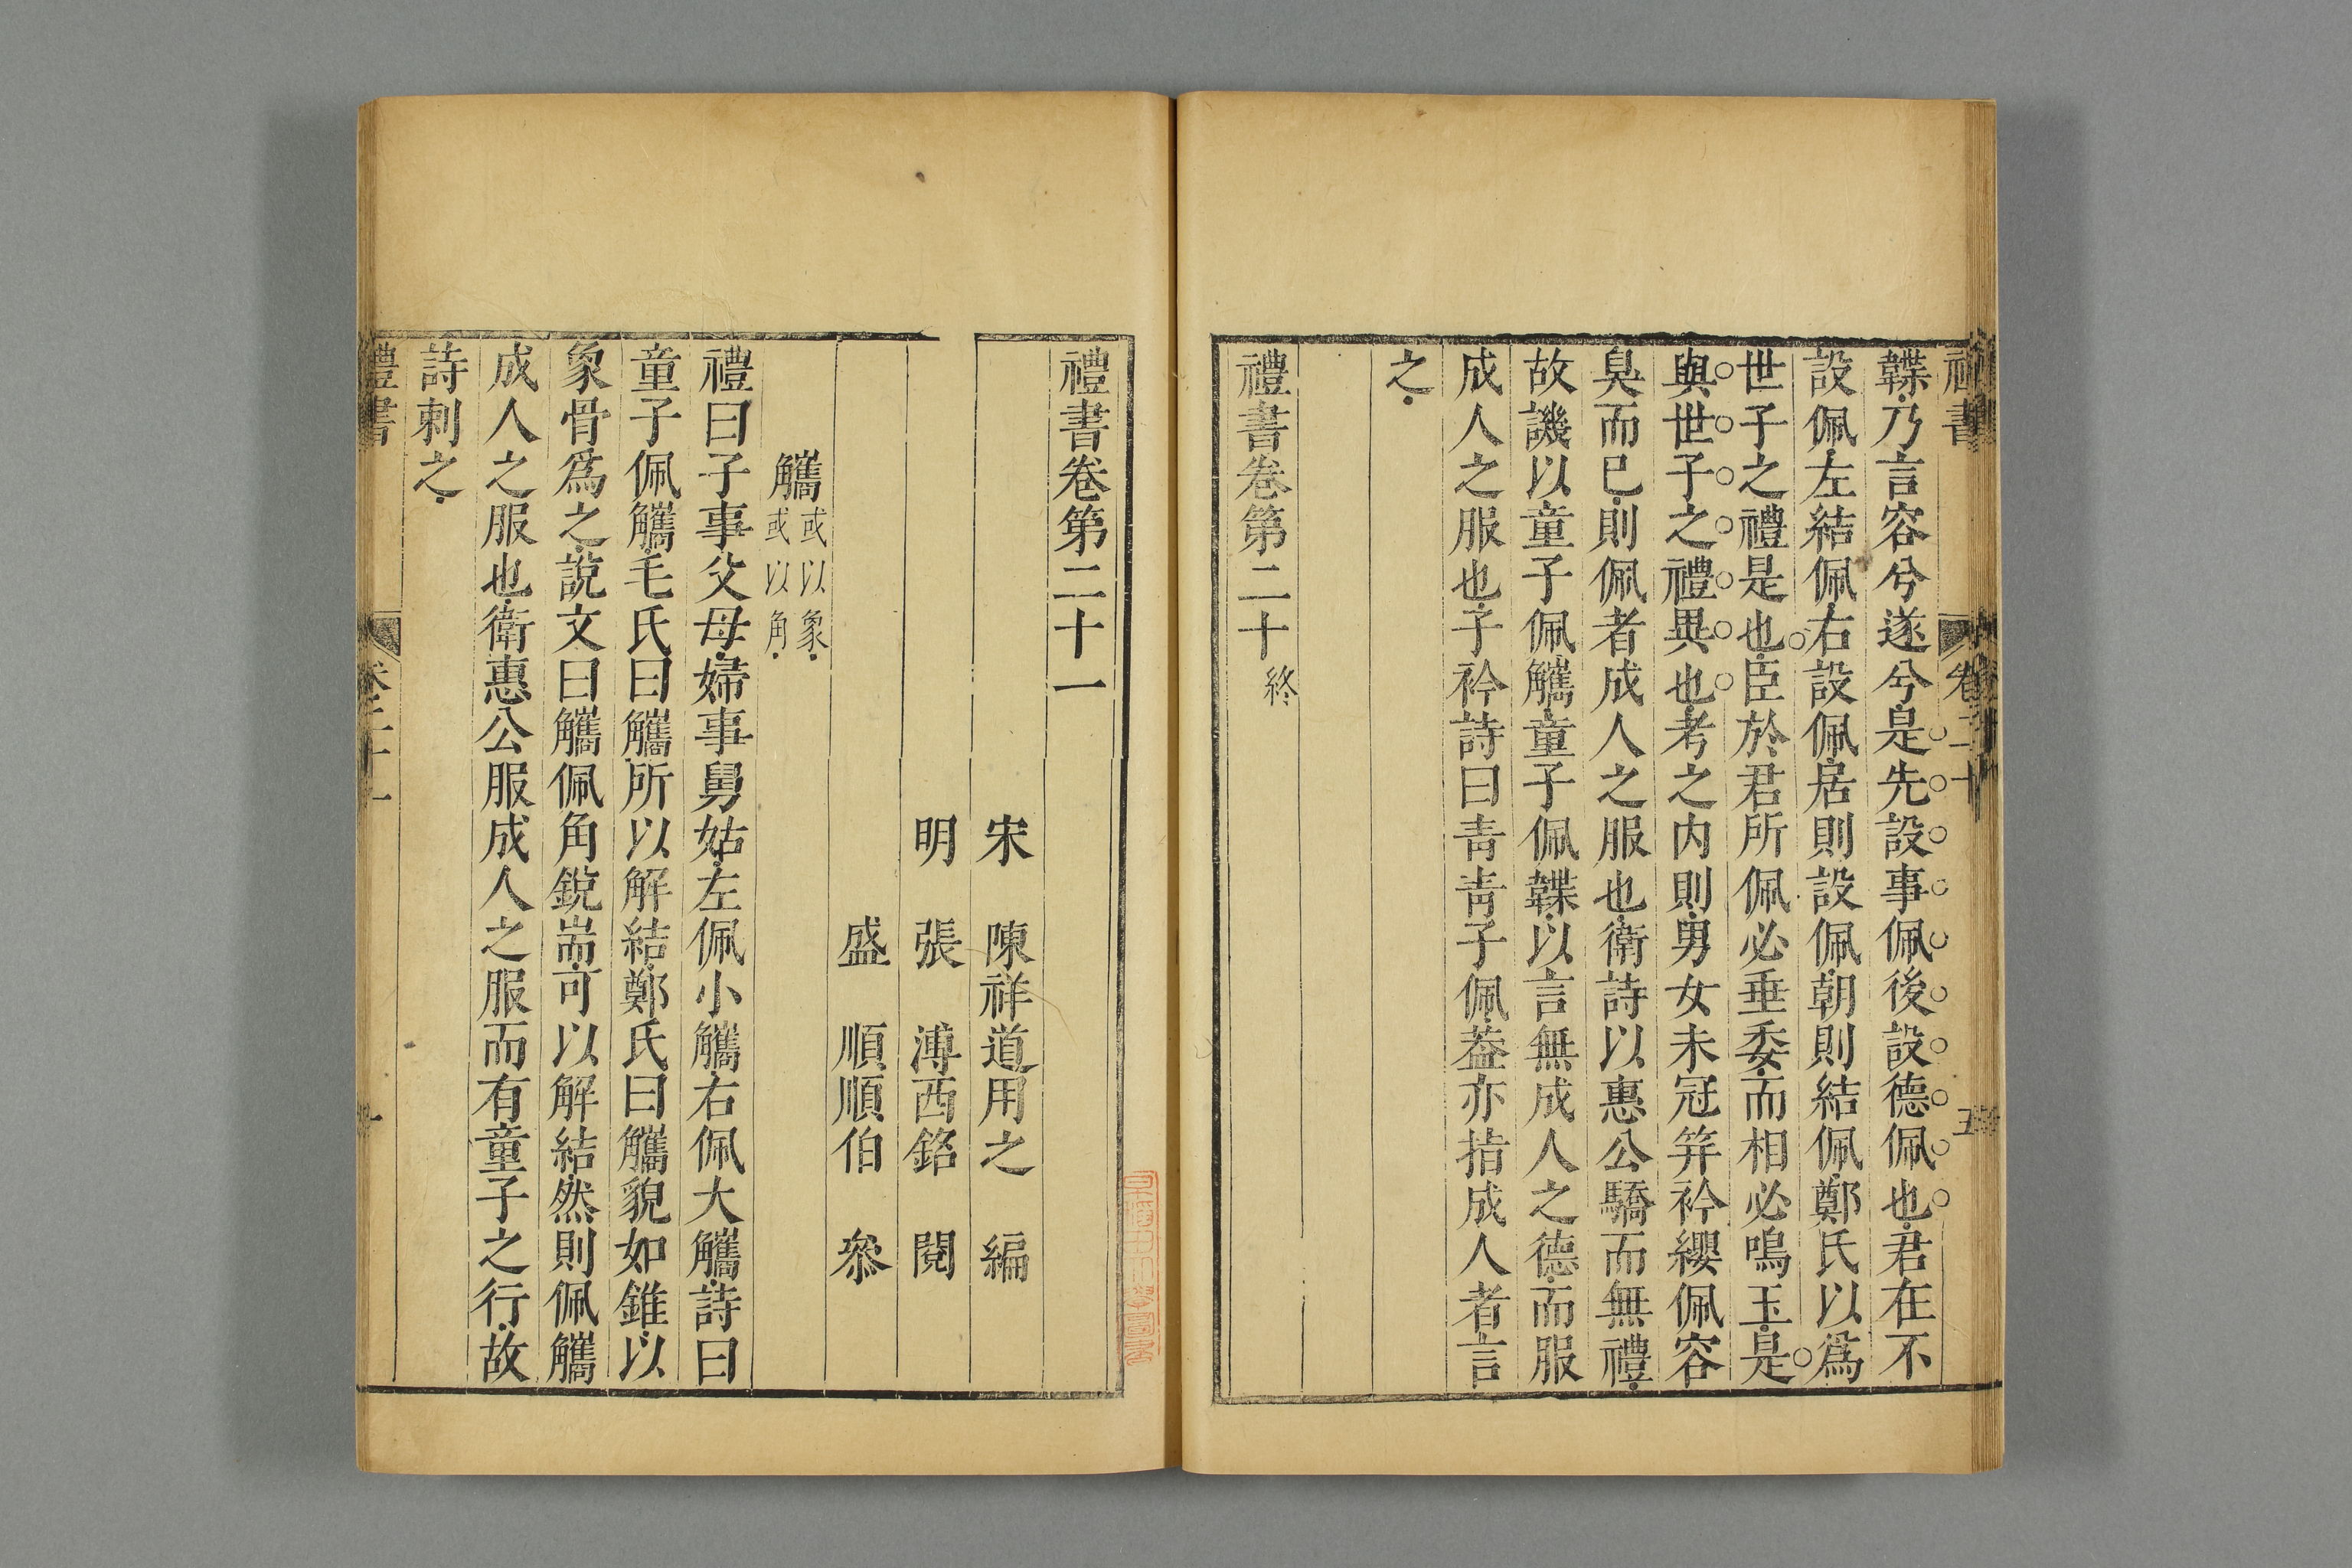 禮書
卷二十
五
韘乃言容兮遂兮是先設事佩後設德佩也君在不
設佩左結佩右設佩居則設佩朝則結佩鄭氏以爲
世子之禮是也臣於君所佩必垂委而相必鳴玉是
與世子之禮異也考之内則男女未冠笄衿纓佩容
臭而已則佩者成人之服也衛詩以惠公驕而無禮
故譏以童子佩觿童子佩韘以言無成人之德而服
成人之服也子衿詩曰青青子佩葢亦指成人者言
之
禮書卷第二十終
禮書卷第二十一
宋 陳祥道用之 編
明 張 溥西銘 閱
盛 順順伯 叅
觿或以象或以角
禮曰子事父母婦事舅姑左佩小觿右佩大觿詩曰
童子佩觿毛氏曰觿所以解結鄭氏曰觿貌如錐以
象骨爲之說文曰觿佩角銳耑可以解結然則佩觿
成人之服也衛惠公服成人之服而有童子之行故
詩刺之
禮書
卷二十一
一